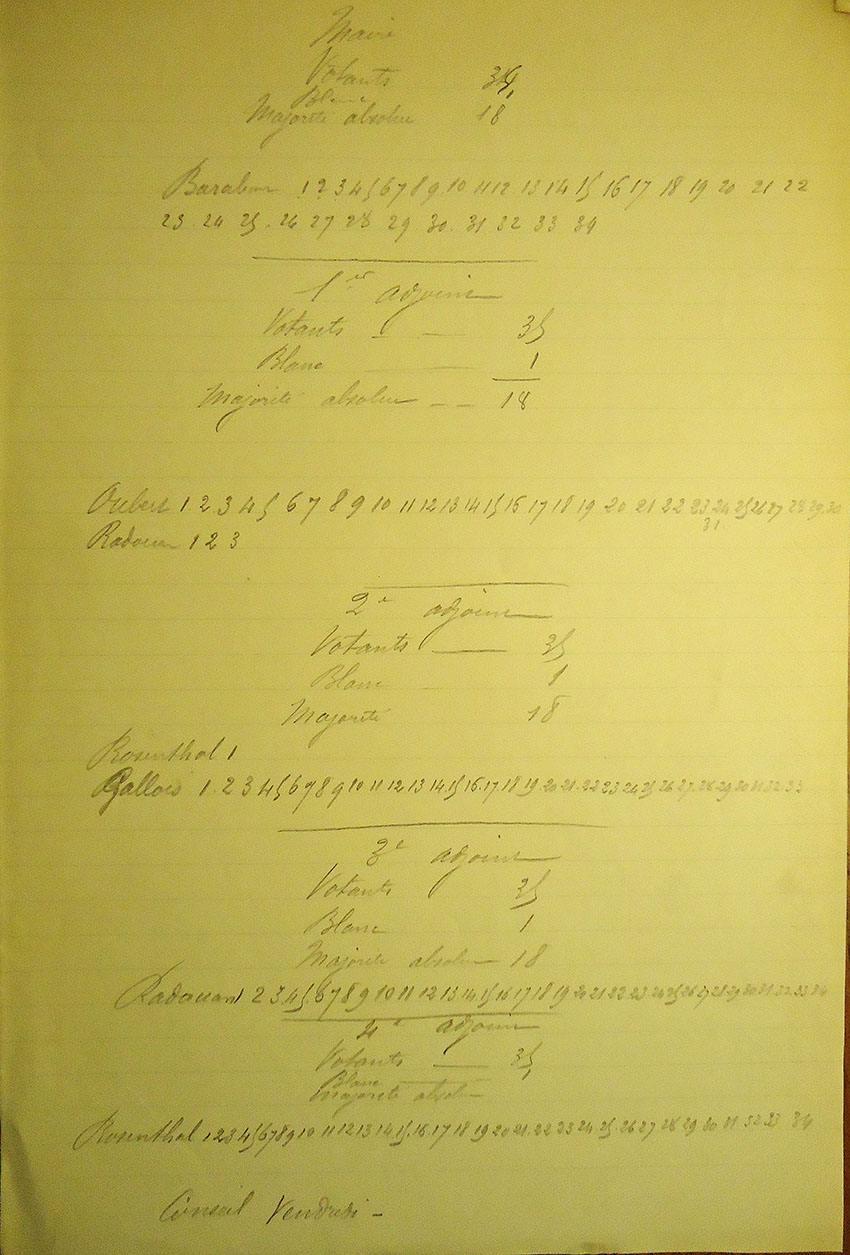 Maire
Votants 35
Blanc 1
Majorité absolue 18
Baraban 1 2 3 4 5 6 7 8 9 10 11 12 13 14 15 16 17 18 19 20 21 22
23 24 25 26 27 28 29 30 31 32 33 34
1er adjoint
Votants 35
Blanc 1
Majorité absolue 18
1 2 3 4 5 6 7 8 9 10 11 12 13 14 15 16 17 18 19 20 21 22 23 24 25 26 27 28 29 30
31
Radouan 1 2 3
2e adjoint
Votants 35
Blanc 1
Majorité 18
Rosenthal 1
Gallois 1 2 3 4 5 6 7 8 9 10 11 12 13 14 15 16 17 18 19 20 21 22 23 24 25 26 27 28 29 30 31 32 33
3e adjoint
Votants 35
Blanc 1
Majorité absolue 18
Radouan 1 2 3 4 5 6 7 8 9 10 11 12 13 14 15 16 17 18 19 20 21 22 23 24 25 26 27 28 29 30 31 32 33 34
4e adjoint
Votants 35
Blanc 1
Majorité absolue
Rosenthal 1 2 3 4 5 6 7 8 9 10 11 12 13 14 15 16 17 18 19 20 21 22 23 24 25 26 27 28 29 30 31 32 33 34
Conseil Vendredi -